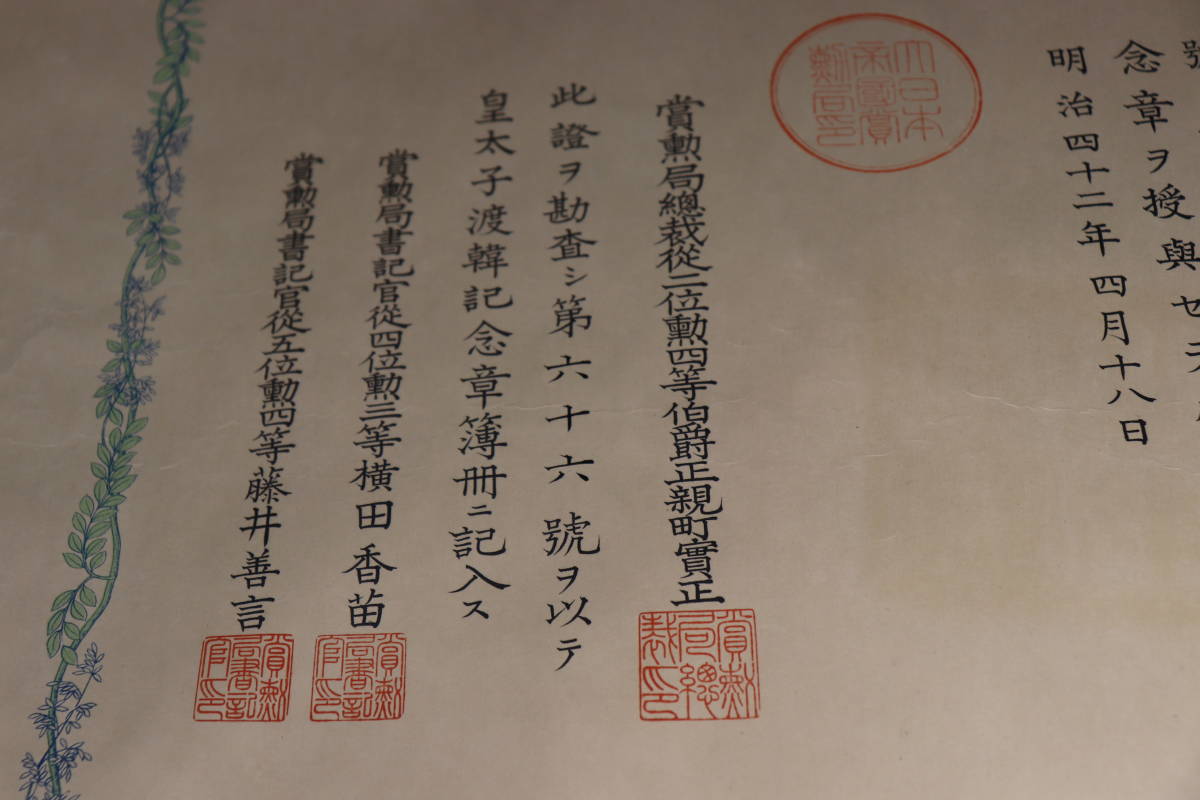 念章ヲ授與セ
明治四十二年四月十八日
大日本帝國賞勲局印
賞勲局總裁從二位勲四等伯爵正親町實正
賞勲局總裁印
此證ヲ勘査シ第六十六號ヲ以テ
皇太子渡韓記念章簿册ニ記入ス
賞勲局書記官從四位勲三等横田香苗
賞勲局書記官印
賞勲局書記官從五位勲四等藤井善言
賞勲局書記官印